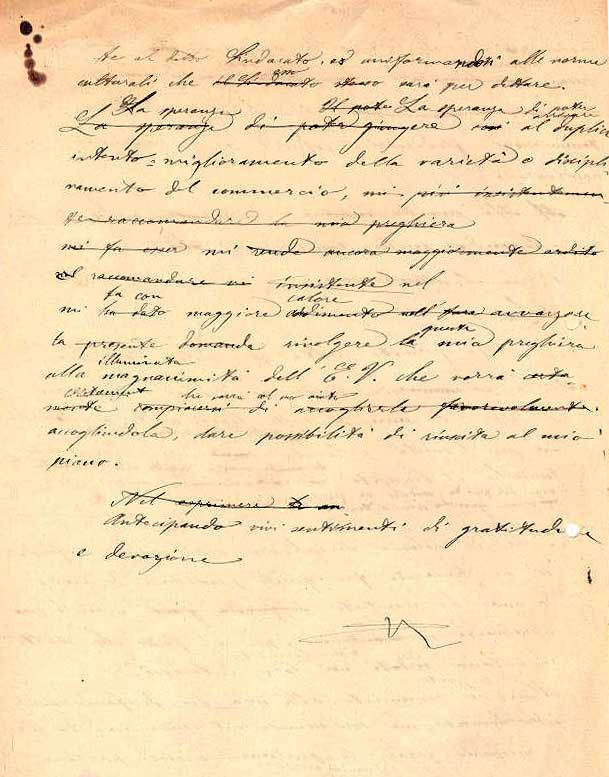 te al detto Sindacato, ed uniformandosi alle norme
culturali che il Sindacato stesso sarà per dettare.
La speranza La speranza di poter
La speranza di poter giungere al duplice
intento, miglioramento della varietà e discipli
namento del commercio, mi più insistentemen
te raccomandare la mia preghiera
mi fa esser mi rende ancora maggiormente ardito
nel raccomandare insistente nel
fa con calore
mi ha dato maggiore ardimento nell'
questa
la presente domanda rivolgere la mia preghiera
illuminata
alla magnanimità dell' E. V. che vorrà
che vorrà
compiacersi di accoglierla favorevolmente.
accogliendola, dare possibilità di riuscita al mio
piano.
Nel esprimere
Antecipando vivi sentimenti di gratitudine
e devozione